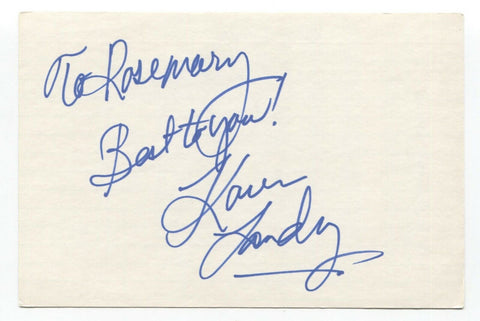 To Rosemary
Best to you!
Karen
Landry